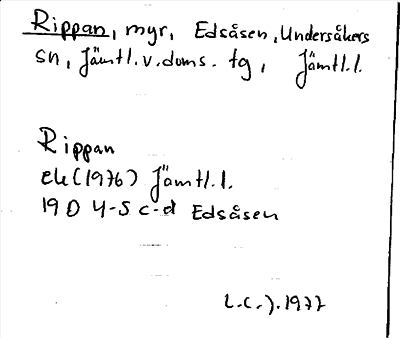 Rippan, myr, Edsåsen, Undersåkers
sn, Jämtl. v. doms. tg, Jämtl. l.
Rippan
ek (1976) Jämtl. l.
19 D 4-5 c-d Edsåsen
L.C.J. 1977